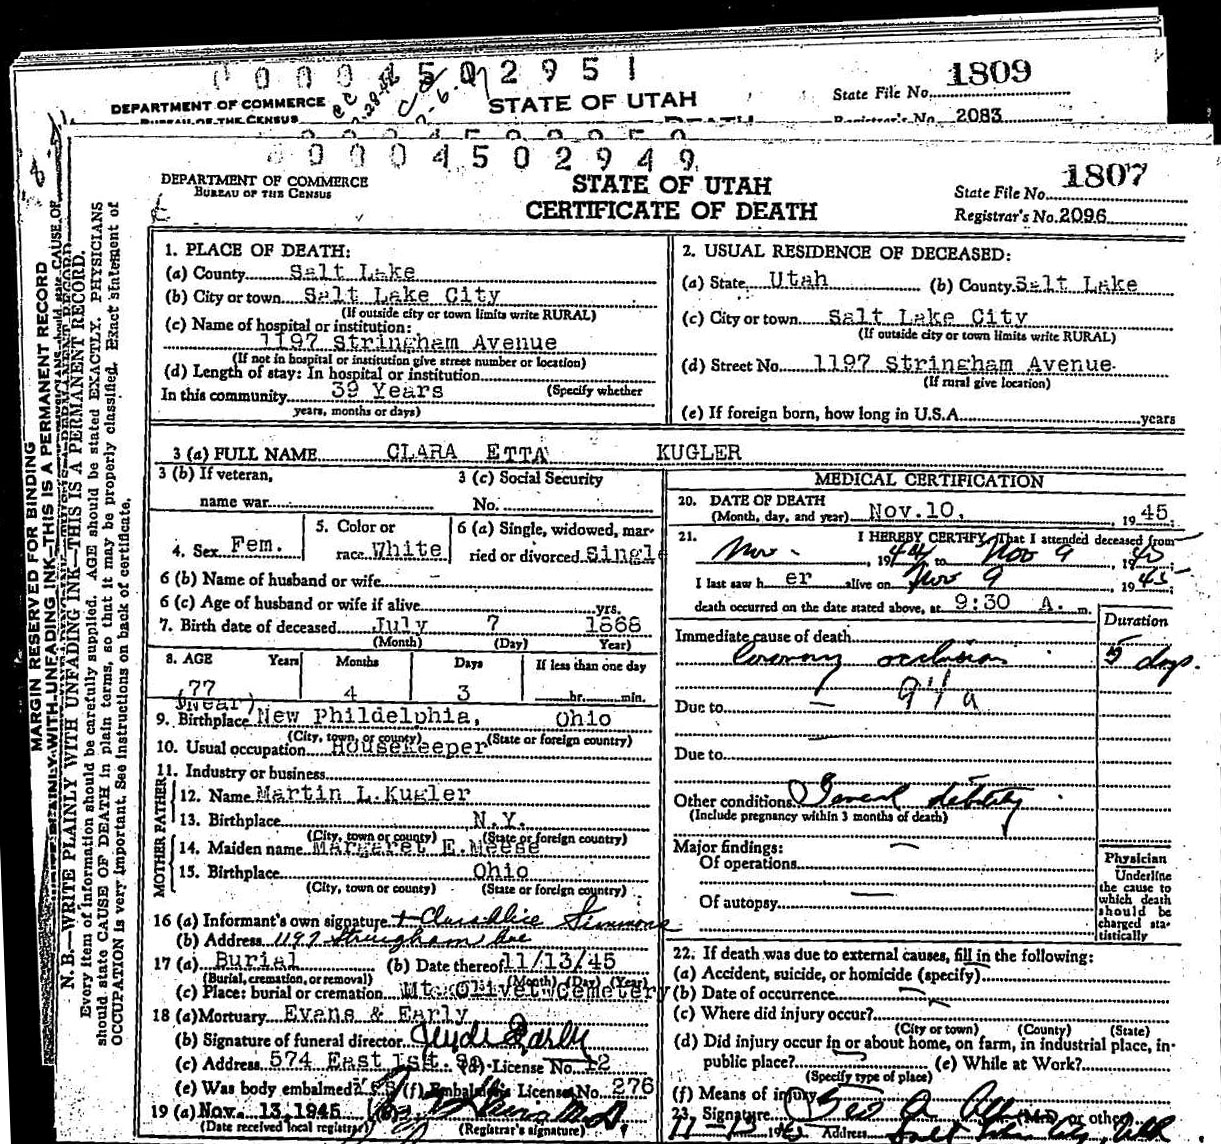 00004502951
1809
DEPARTMENT OF COMMERCE
BUREAU OF THE CENSUS
STATE OF UTAH
State File No.
Registrar's No. 2083
DEATH
00004502949
DEPARTMENT OF COMMERCE
BUREAU OF THE CENSUS
STATE OF UTAH
CERTIFICATE OF DEATH
State File No. 1807
Registrar's No. 2096
MARGIN RESERVED FOR BINDING
N. B.—WRITE PLAINLY WITH UNFADING INK—THIS IS A PERMANENT RECORD.
Every item of information should be carefully supplied. AGE should be stated EXACTLY. PHYSICIANS
should state CAUSE OF DEATH in plain terms, so that it may be properly classified. Exact statement of
OCCUPATION is very important. See instructions on back of certificate.
1. PLACE OF DEATH:
(a) County Salt Lake
(b) City or town Salt Lake City
(If outside city or town limits write RURAL)
(c) Name of hospital or institution:
1197 Stringham Avenue
(If not in hospital or institution give street number or location)
(d) Length of stay: In hospital or institution
In this community 39 Years (Specify whether
years, months or days)
2. USUAL RESIDENCE OF DECEASED:
(a) State Utah (b) County Salt Lake
(c) City or town Salt Lake City
(If outside city or town limits write RURAL)
(d) Street No. 1197 Stringham Avenue
(If rural give location)
(e) If foreign born, how long in U.S.A. years
3 (a) FULL NAME CLARA ETTA KUGLER
3 (b) If veteran,
name war
3 (c) Social Security
No.
4. Sex Fem.
5. Color or
race White
6 (a) Single, widowed, mar-
ried or divorced Single
6 (b) Name of husband or wife
6 (c) Age of husband or wife if alive yrs.
7. Birth date of deceased July 7 1868
(Month) (Day) Year)
8. AGE Years Months Days If less than one day
77 4 3 hr. min.
(Near)
9. Birthplace New Phildelphia, Ohio
(City, town, or county) (State or foreign country)
10. Usual occupation Housekeeper
11. Industry or business
FATHER
12. Name Martin L. Kugler
13. Birthplace N.Y.
(City, town or county) (State or foreign country)
MOTHER
14. Maiden name Margaret E. Meese
15. Birthplace Ohio
(City, town or county) (State or foreign country)
16 (a) Informant's own signature + Clara Alice Simmons
(b) Address 1197 Stringham Ave
17 (a) Burial (b) Date thereof 11/13/45
(Burial, cremation, or removal) (Month) (Day) (Year)
(c) Place: burial or cremation Mt. Olivet Cemetery
18 (a) Mortuary Evans & Early
(b) Signature of funeral director Clyde Early
(c) Address 574 East 1st. So. (d) License No. 12
(e) Was body embalmed? Yes (f) Embalmer's License No. 276
19 (a) Nov. 13, 1945
(Date received local registrar) (Registrar's signature)
MEDICAL CERTIFICATION
20. DATE OF DEATH
(Month, day, and year) Nov. 10, 1945
21. I HEREBY CERTIFY, That I attended deceased from
Nov - , 1944 to Nov 9 , 1945
I last saw her alive on Nov 9 1945;
death occurred on the date stated above, at 9:30 A. m.
Duration
Immediate cause of death
Coronary occlusion 5 days.
94a
Due to —
Due to
Other conditions General debility
(Include pregnancy within 3 months of death)
Major findings:
Of operations
Of autopsy
Physician
Underline
the cause to
which death
should be
charged sta-
tistically
22. If death was due to external causes, fill in the following:
(a) Accident, suicide, or homicide (specify)
(b) Date of occurrence
(c) Where did injury occur?
(City or town) (County) (State)
(d) Did injury occur in or about home, on farm, in industrial place, in-
public place? (e) While at Work?
(Specify type of place)
(f) Means of injury
23. Signature Geo A. (M.D. or other)
11-13 Address Salt Lake City, Utah